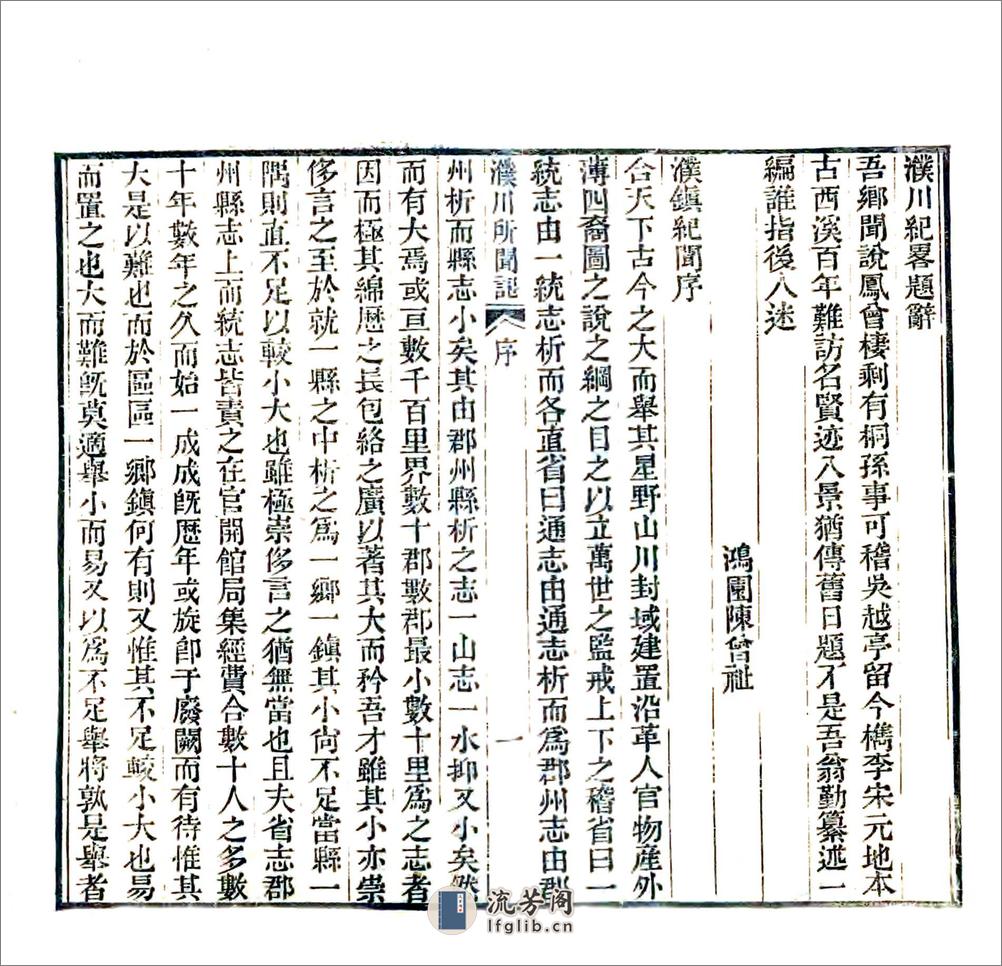 濮川紀畧題辭
吾鄉聞說鳳曾棲剩有桐孫事可稽吳越亭留今檇李宋元地本
古西溪百年難訪名賢迹八景猶傳舊日題不是吾翁勤纂述一
編誰指後人迷
鴻園陳曾祉
濮鎮紀聞序
合天下古今之大而舉其星野山川封域建置沿革人官物產外
薄四裔圖之說之綱之目之以立萬世之監戒上下之稽省曰一
統志由一統志析而各直省曰通志由通志析而爲郡州志由郡
濮川所聞記 序 一
州析而縣志小矣其由郡州縣析之志一山志一水抑又小矣然
而有大焉或亘數千百里界數十郡數郡最小數十里爲之志者
因而極其綿厯之長包絡之廣以著其大而矜吾才雖其小亦崇
侈言之至於就一縣之中析之爲一鄉一鎮其小尙不足當縣一
隅則直不足以較小大也雖極崇侈言之猶無當也且夫省志郡
州縣志上而統志皆責之在官開館局集經費合數十人之多數
十年數年之久而始一成成旣厯年或旋卽于廢闕而有待惟其
大是以難也而於區區一鄉鎮何有則又惟其不足較小大也易
而置之也大而難旣莫適舉小而易又以爲不足舉將孰是舉者
流芳阁
lfglib.cn